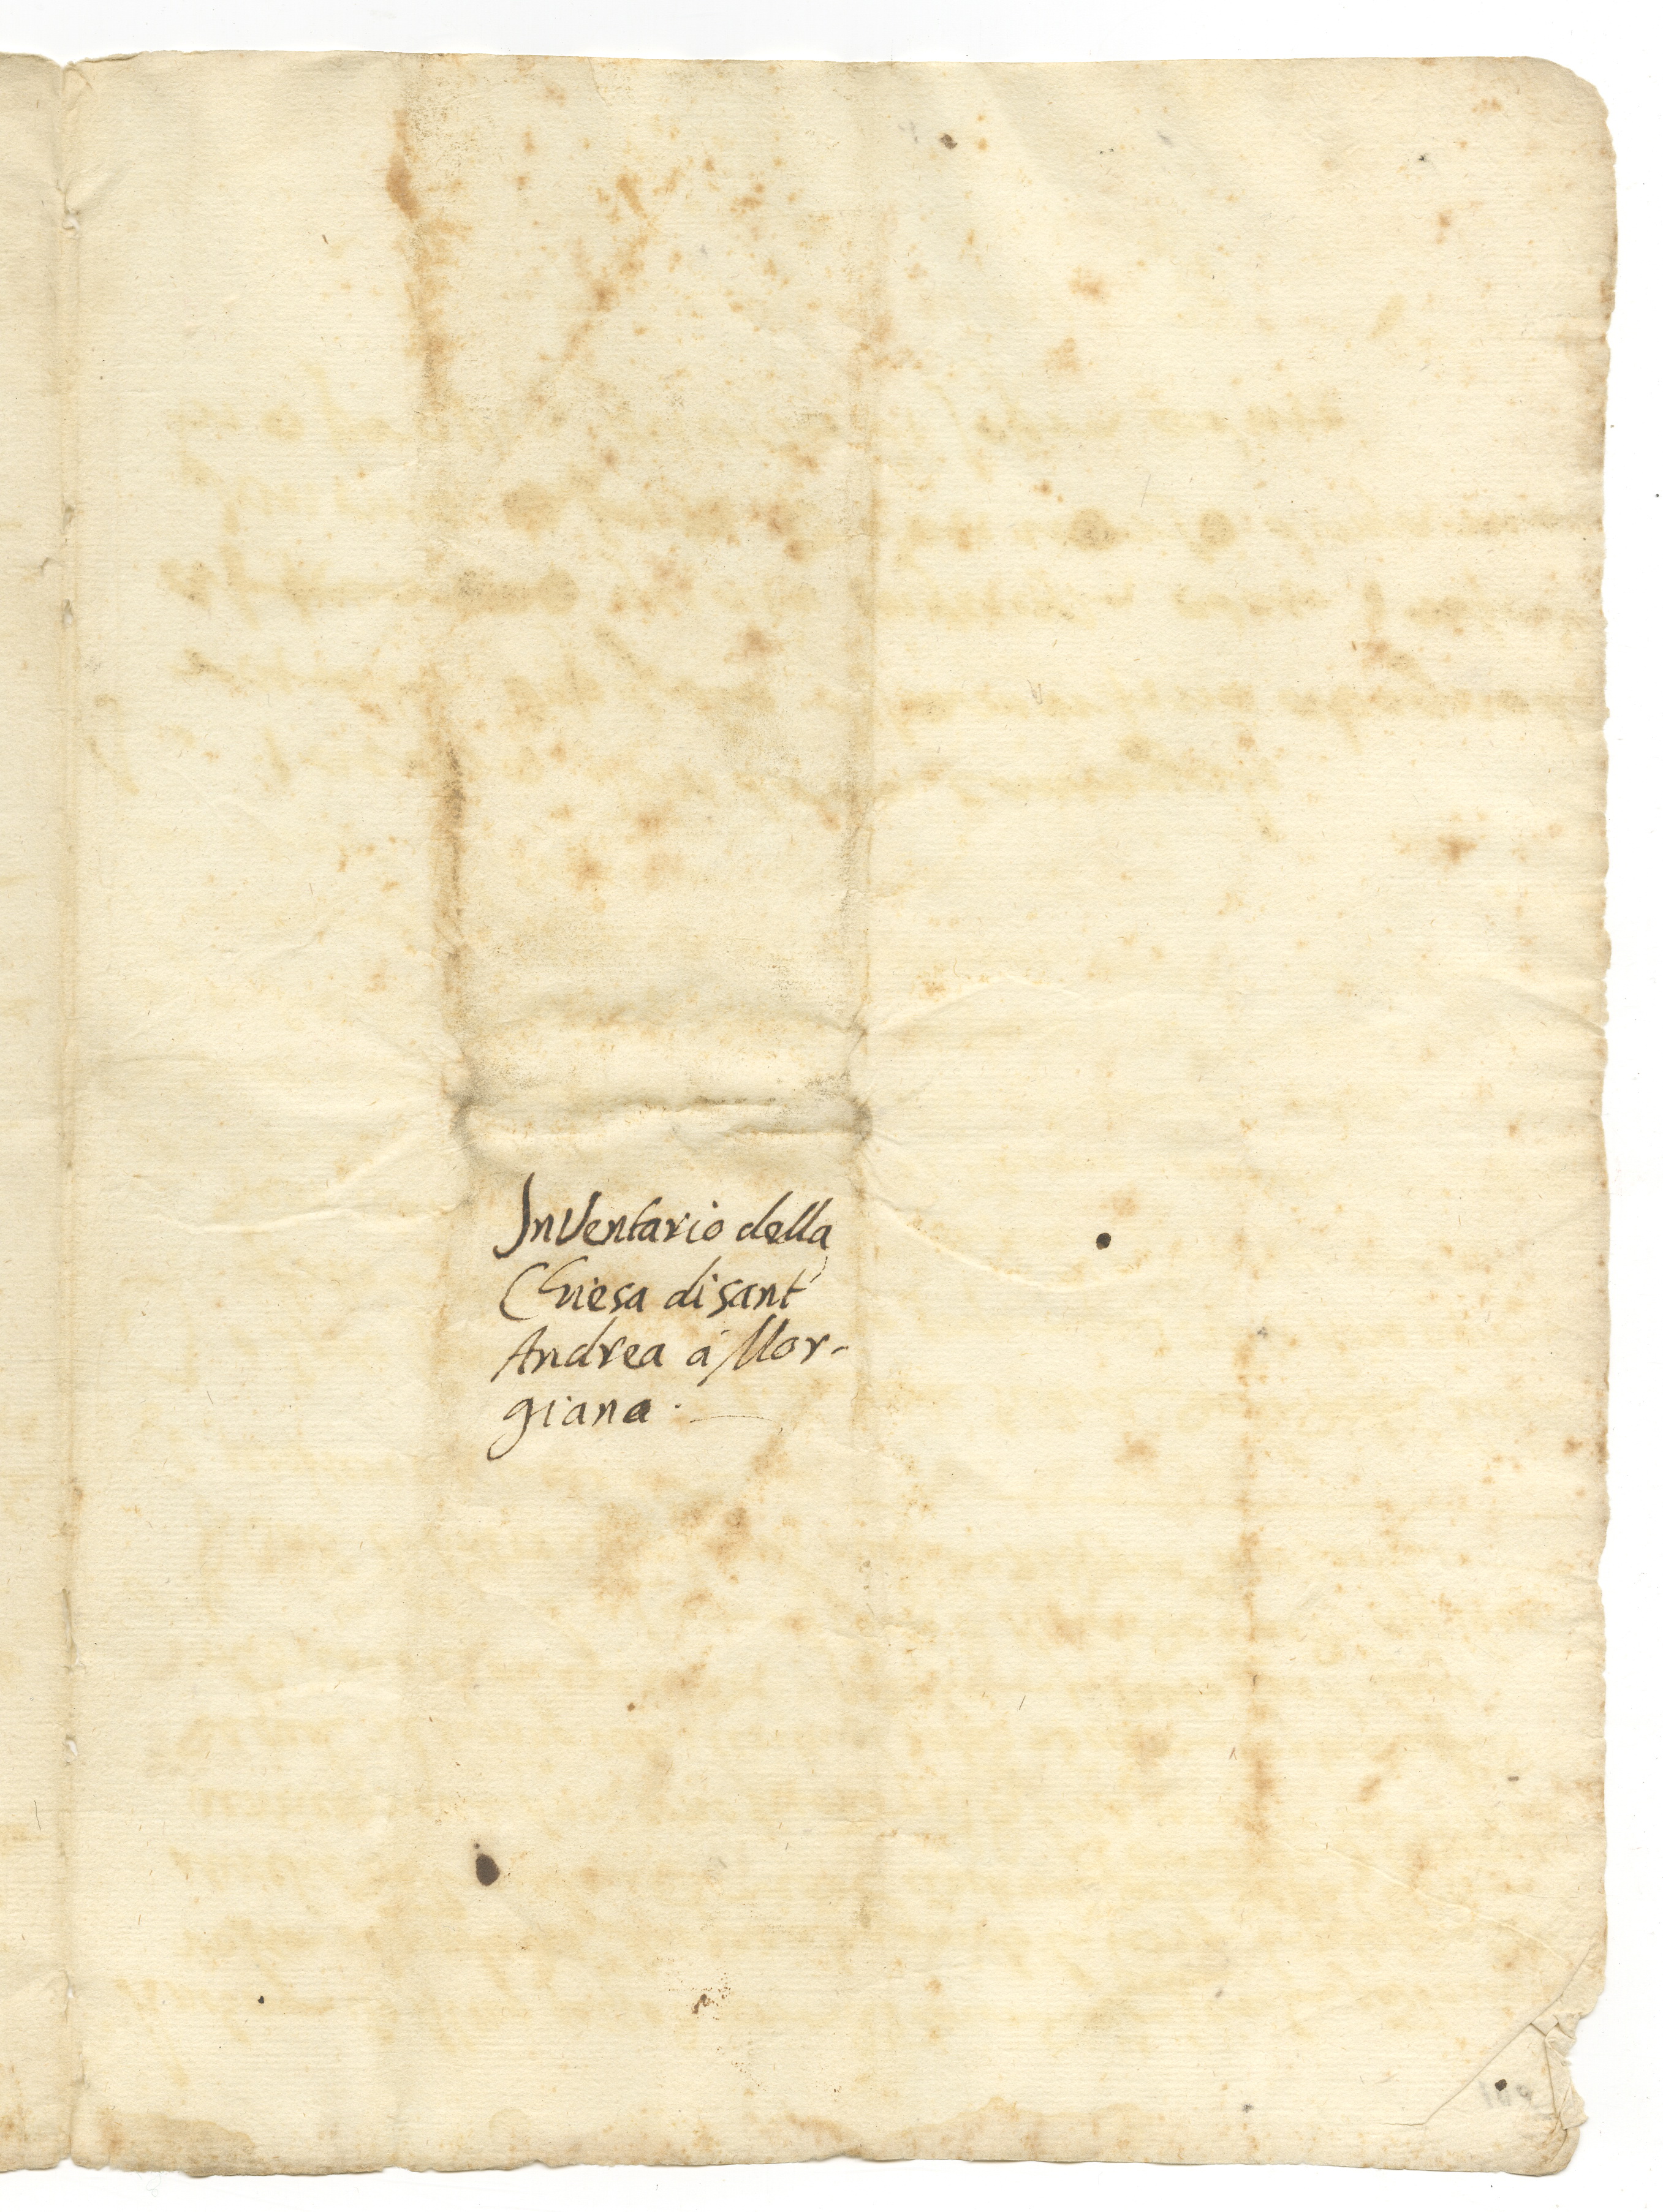 Inventario della
Chiesa di sant'
Andrea à Mor-
giana.